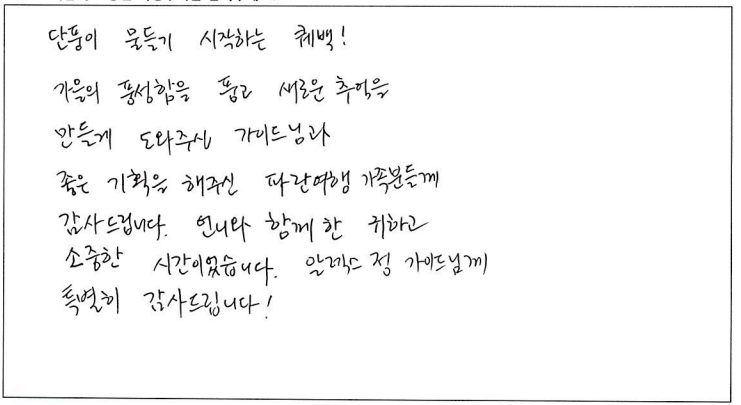 단풍이 물들기 시작하는 퀘백!
가을의 풍성함을 품고 새로운 추억을
만들게 도와주신 가이드님과
좋은 기획을 해주신 파란여행 가족분들께
감사드립니다. 언니와 함께 한 귀하고
소중한 시간이었습니다. 알렉스 정 가이드님께
특별히 감사드립니다!